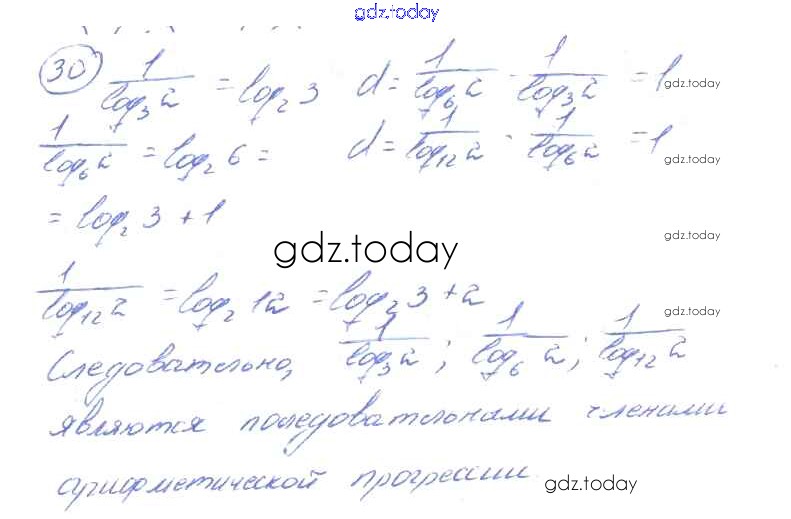 gdz.today
30 1/log₃2 = log₂3 d = 1/log₆2 - 1/log₃2 = 1 gdz.today
1/log₆2 = log₂6 = d = 1/log₁₂2 - 1/log₆2 = 1 gdz.today
= log₂3 + 1 gdz.today
gdz.today
1/log₁₂2 = log₂12 = log₂3 + 2 gdz.today
Следовательно, 1/log₃2 ; 1/log₆2 ; 1/log₁₂2
являются последовательными членами
арифметической прогрессии.
gdz.today